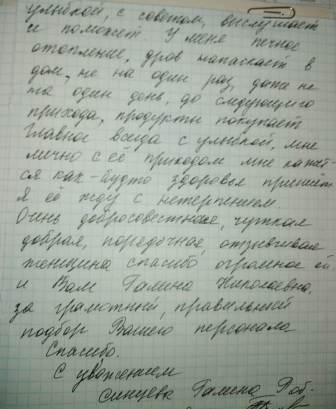 улыбкой, с советом, выслушает
и поможет. У меня печное
отопление, дров натаскает в
дом, не на один раз, даже не
на один день, до следующего
прихода, продукты покупает
Главное всегда с улыбкой, мне
лично с её приходом мне кажет-
ся как-будто здоровье принесёт
Я её жду с нетерпением.
Очень добросовестная, чуткая
добрая, поредочная, отзывчивая
женщина спасибо огромное ей
и Вам Галина Николаевна,
за грамотный, правильный
подбор Вашего персонала
Спасибо.
С уважением
Синцева Галина